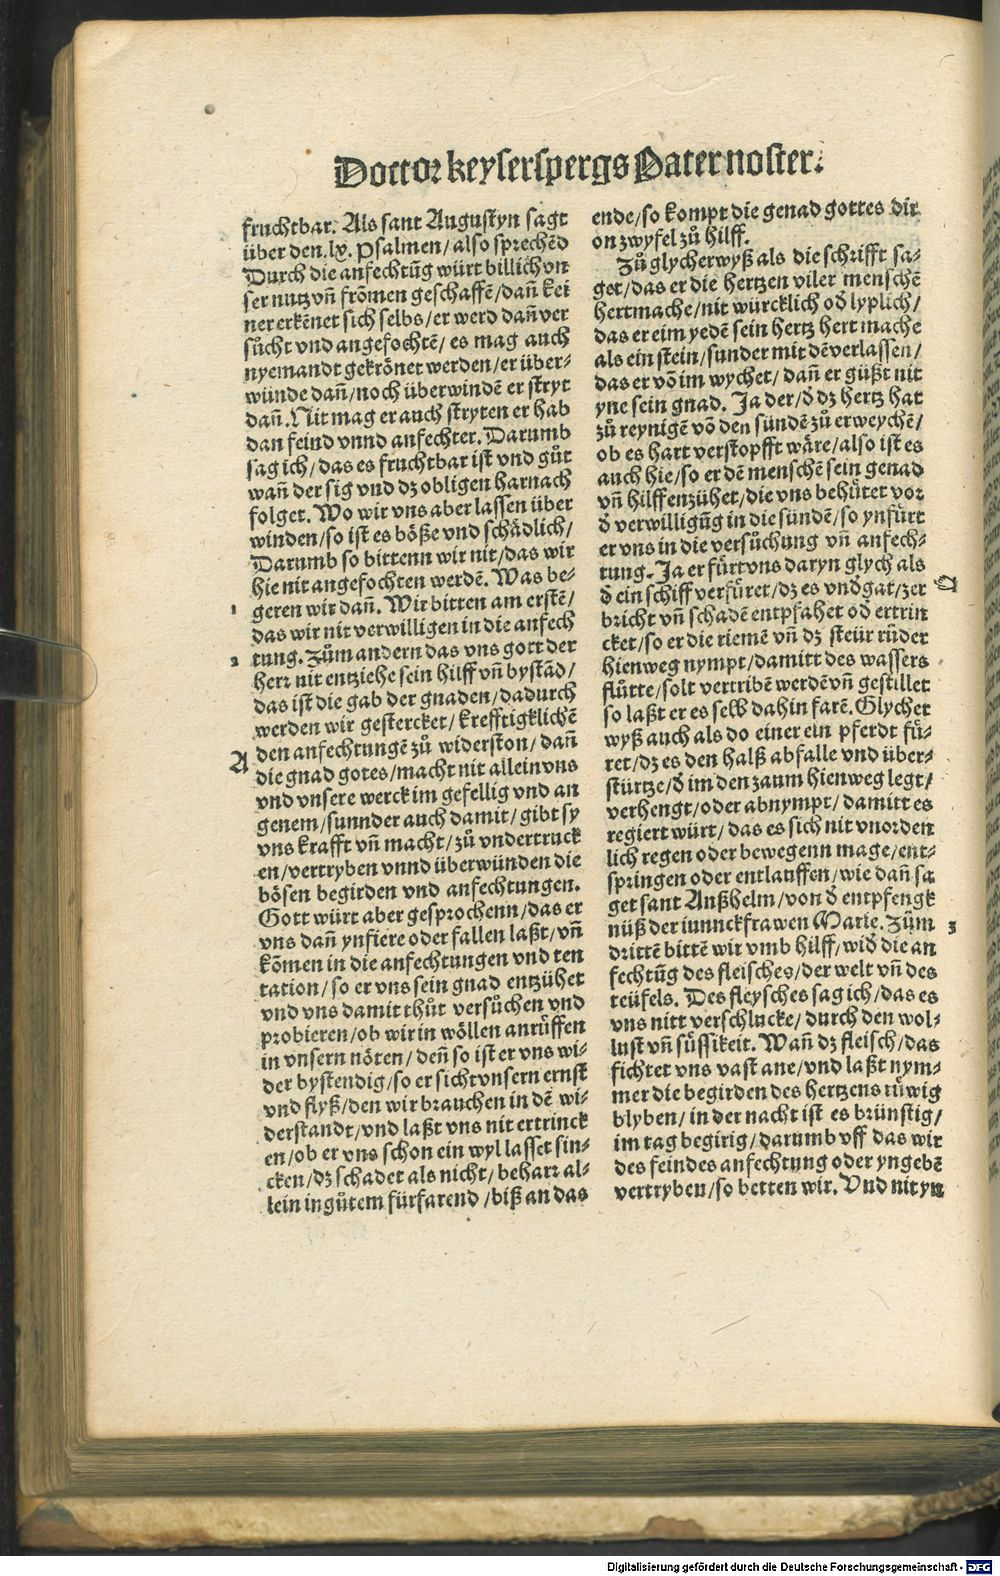 Doctor keyserspergs Pater noster.
fruchtbar. Als sant Augustyn sagt
über den. lx. Psalmen/ also sprechēd
Durch die anfechtūg würt billich vn
ser nutz vn̄ frōmen geschaffē/ dan̄ kei
ner erkēnet sich selbs/ er werd dan̄ ver
sůcht vnd angefochtē/ es mag auch
nyemandt gekrönet werden/ er über⸗
wünde dan̄/ noch überwindē er stryt
dan̄. Nit mag er auch stryten er hab
dan feind vnnd anfechter. Darumb
sag ich/ das es fruchtbar ist vnd gůt
wan̄ der sig vnd dz obligen harnach
folget. Wo wir vns aber lassen über
winden/ so ist es böße vnd schädlich/
Darumb so bittenn wir nit/ das wir
hie nit angefochten werdē. Was be⸗
1 geren wir dan̄. Wir bitten am erstē/
das wir nit verwilligen in die anfech
2 tung. Zům andern das vns gott der
herr nit entziehe sein hilff vn̄ bystād/
das ist die gab der gnaden/ dadurch
werden wir gestercket/ krefftigklichē
A den anfechtungē zů widerston/ dan̄
die gnad gotes/ macht nit allein vns
vnd vnsere werck im gefellig vnd an
genem/ sunnder auch damit/ gibt sy
vns krafft vn̄ macht/ zů vndertruck
en/ vertryben vnnd überwünden die
bösen begirden vnd anfechtungen.
Gott würt aber gesprochenn/ das er
vns dan̄ ynfiere oder fallen laßt/ vn̄
kōmen in die anfechtungen vnd ten
tation/ so er vns sein gnad entzühet
vnd vns damit thůt versůchen vnd
probieren/ ob wir in wöllen anrüffen
in vnsern nöten/ den̄ so ist er vns wi⸗
der bystendig/ so er sicht vnsern ernst
vnd flyß/ den wir brauchen in dē wi⸗
derstandt/ vnd laßt vns nit ertrinck
en/ ob er vns schon ein wyl lasset sin⸗
cken/ dz schadet als nicht/ beharr al⸗
lein in gůtem fürfarend/ biß an das
ende/ so kompt die genad gottes dir
on zwyfel zů hilff.
Zů glycherwyß als die schrifft sa⸗
get/ das er die hertzen viler menschē
hertmache/ nit würcklich od̄ lyplich/
das er eim yedē sein hertz hert mache
als ein stein/ sunder mit dē verlassen/
das er vō im wychet/ dan̄ er güßt nit
yne sein gnad. Ja der/ d̄ dz hertz hat
zů reynigē vō den sündē zů erweychē/
ob es hart verstopfft wäre/ also ist es
auch hie/ so er dē menschē sein genad
vn̄ hilff enzühet/ die vns behůtet vor
d̄ verwilligūg in die sündē/ so ynfürt
er vns in die versůchung vn̄ anfech⸗
tung. Ja er fürt vns daryn glych als
d̄ ein schiff verfüret/ dz es vnd̄gat/ zer
bricht vn̄ schadē entpfahet od̄ ertrin
cket/ so er die riemē vn̄ dz steür rüder
hienweg nympt/ damitt des wassers
flütte/ solt vertribē werdē vn̄ gestillet
so laßt er es selb dahin farē. Glycher
wyß auch als do einer ein pferdt fü⸗
ret/ dz es den halß abfalle vnd über⸗
stürtze/ d̄ im den zaum hienweg legt/
verhengt/ oder abnympt/ damitt es
regiert würt/ das es sich nit vnorden
lich regen oder bewegenn mage/ ent⸗
springen oder entlauffen/ wie dan̄ sa
get sant Anßhelm/ von d̄ entpfengk
nüß der iunnckfrawen Marie. Zům 3
drittē bittē wir vmb hilff/ wid̄ die an
fechtūg des fleisches/ der welt vn̄ des
teüfels. Des fleysches sag ich/ das es
vns nitt verschlucke/ durch den wol⸗
lust vn̄ süssikeit. Wan̄ dz fleisch/ das
fichtet vns vast ane/ vnd laßt nym⸗
mer die begirden des hertzens rüwig
blyben/ in der nacht ist es brünstig/
im tag begirig/ darumb vff das wir
des feindes anfechtung oder yngebē
vertryben/ so betten wir. Vnd nit yn
Digitalisierung gefördert durch die Deutsche Forschungsgemeinschaft - DFG